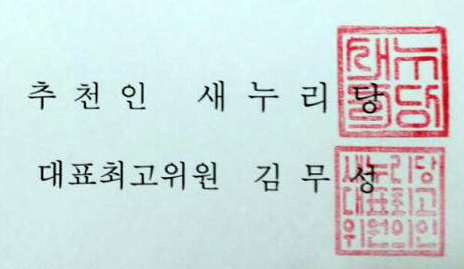 추천인 새누리당
대표최고위원 김무성
새누리당
대표최고
위원의인